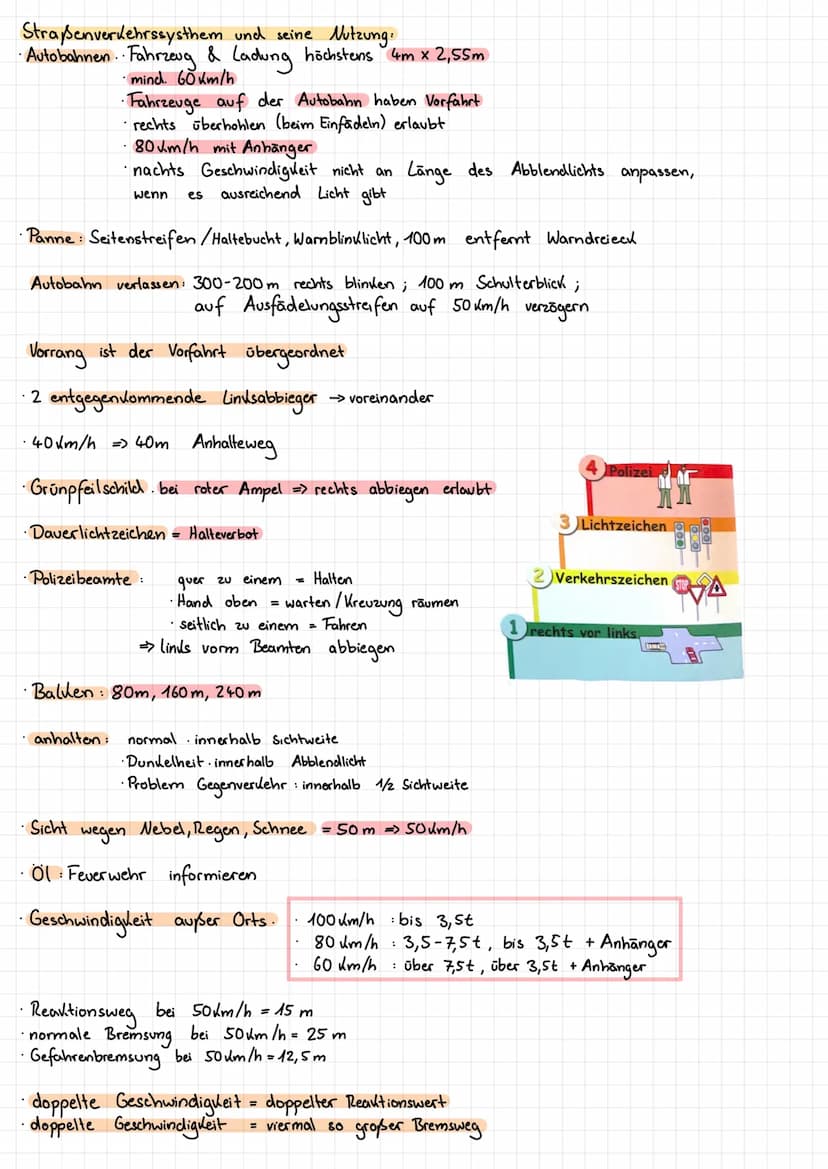 Straßenverkehrssysthem und seine Nutzung:
· Autobahnen: · Fahrzeug & Ladung höchstens 4m x 2,55m
· mind. 60 km/h
· Fahrzeuge auf der Autobahn haben Vorfahrt
· rechts überhohlen (beim Einfädeln) erlaubt
· 80 km/h mit Anhänger
· nachts Geschwindigkeit nicht an Länge des Abblendlichts anpassen,
wenn es ausreichend Licht gibt
· Panne: Seitenstreifen / Haltebucht, Warnblinklicht, 100 m entfernt Warndreieck
Autobahn verlassen: 300-200 m rechts blinken ; 100 m Schulterblick ;
auf Ausfädelungsstreifen auf 50 km/h verzögern
Vorrang ist der Vorfahrt übergeordnet
· 2 entgegenkommende Linksabbieger → voreinander
· 40 km/h => 40m Anhalteweg
· Grünpfeilschild: bei roter Ampel => rechts abbiegen erlaubt
· Dauerlichtzeichen = Halteverbot
· Polizeibeamte: quer zu einem = Halten
· Hand oben = warten / Kreuzung räumen
· seitlich zu einem = Fahren
=> links vorm Beamten abbiegen
4 Polizei
3 Lichtzeichen
2 Verkehrszeichen
STOP
1 rechts vor links
· Balken: 80m, 160 m, 240 m
· anhalten: normal: innerhalb Sichtweite
· Dunkelheit: innerhalb Abblendlicht
· Problem Gegenverkehr : innerhalb 1/2 Sichtweite
· Sicht wegen Nebel, Regen, Schnee = 50 m => 50 km/h
· Öl: Feuerwehr informieren
· Geschwindigkeit außer Orts: · 100 km/h : bis 3,5t
· 80 km/h : 3,5-7,5t, bis 3,5t + Anhänger
· 60 km/h : über 7,5t, über 3,5t + Anhänger
· Reaktionsweg bei 50 km/h = 15 m
· normale Bremsung bei 50 km/h = 25 m
· Gefahrenbremsung bei 50 km/h = 12,5 m
· doppelte Geschwindigkeit = doppelter Reaktionswert
· doppelte Geschwindigkeit = viermal so großer Bremsweg